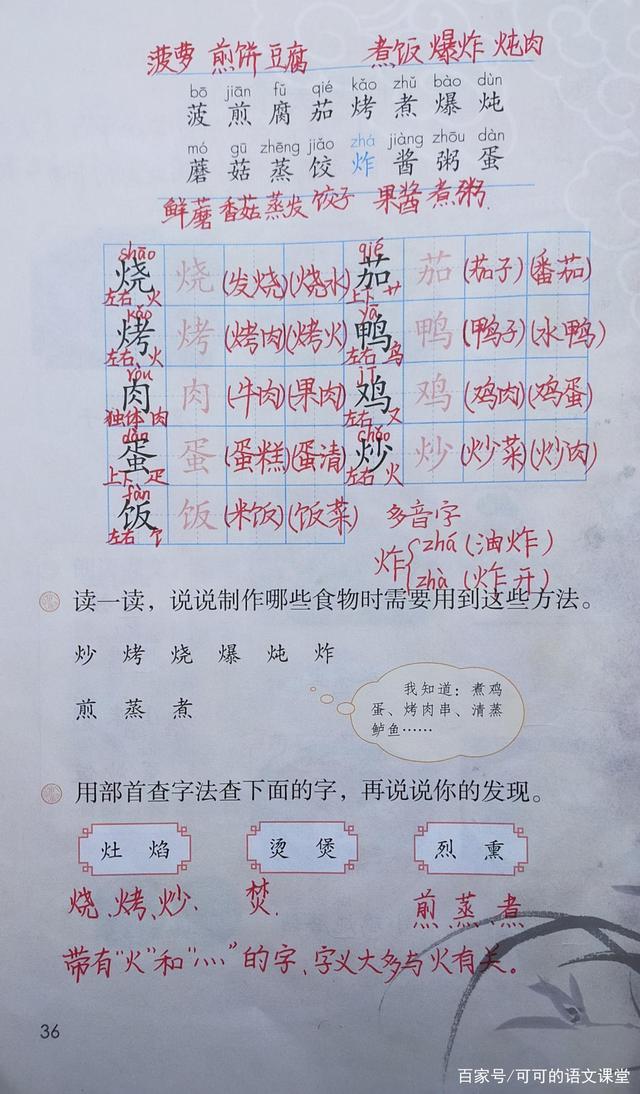 菠萝 煎饼 豆腐 煮饭 爆炸 炖肉
bō jiān fǔ qié kǎo zhǔ bào dùn
菠 煎 腐 茄 烤 煮 爆 炖
mó gū zhēng jiǎo zhá jiàng zhōu dàn
蘑 菇 蒸 饺 炸 酱 粥 蛋
鲜蘑 香菇 蒸发 饺子 果酱 煮粥
shāo qié
烧 烧 (发烧)(烧水) 茄 茄 (茄子)(番茄)
左右 火 上下 艹
kǎo yā
烤 烤 (烤肉)(烤火) 鸭 鸭 (鸭子)(水鸭)
左右、火 左右 鸟
ròu jī
肉 肉 (牛肉)(果肉) 鸡 鸡 (鸡肉)(鸡蛋)
独体 肉 左右 又
dàn chǎo
蛋 蛋 (蛋糕)(蛋清) 炒 炒 (炒菜)(炒肉)
上下、疋 左右 火
fàn
饭 饭 (米饭)(饭菜)
左右 饣
多音字
炸 zhá (油炸)
zhà (炸开)
读一读，说说制作哪些食物时需要用到这些方法。
炒 烤 烧 爆 炖 炸
煎 蒸 煮
我知道：煮鸡
蛋、烤肉串、清蒸
鲈鱼……
用部首查字法查下面的字，再说说你的发现。
灶 焰 烫 煲 烈 熏
烧、烤、炒、 焚. 煎 蒸 煮
带有“火”和“灬”的字、字义大多与火有关。
36
百家号/可可的语文课堂